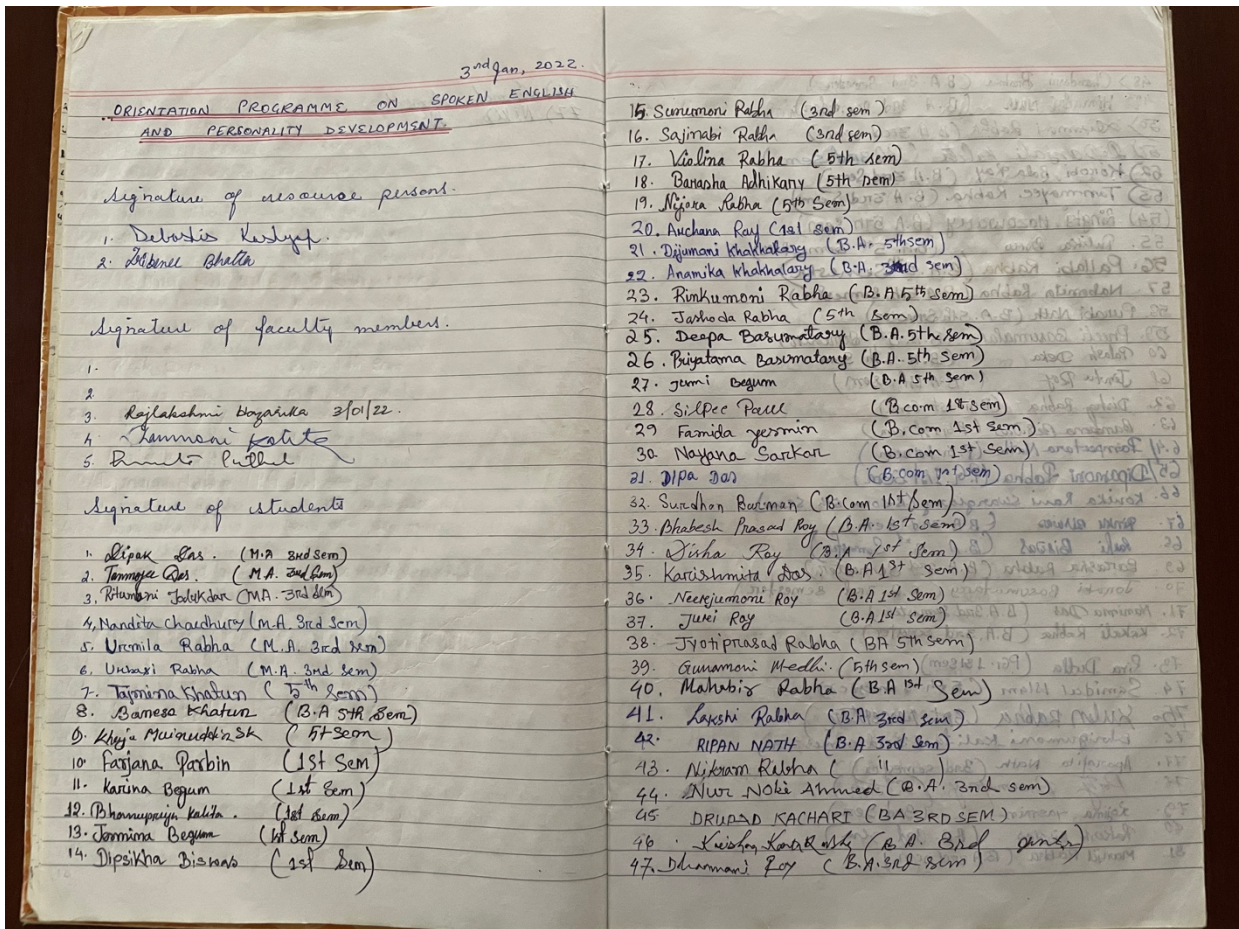 3rd Jan, 2022.
ORIENTATION PROGRAMME ON SPOKEN ENGLISH
AND PERSONALITY DEVELOPMENT.
Signature of resource persons.
1. Debasis Kashyap.
2. Bhatta
Signature of faculty members.
1.
2.
3. Rajlakshmi Hazarika 3/01/22.
4.
5.
Signature of students
1. Dipak Das. (M.A 3rd Sem)
2. Tanmoyee Das. (M.A. 3rd Sem)
3, Ritumani Jodukdar (M.A. 3rd Sem)
4, Nandita Chaudhury (M.A. 3rd Sem)
5. Urmila Rabha (M.A. 3rd sem)
6. Urbasi Rabha (M.A. 3rd Sem)
7. Tajmina Khatun (5th Sem)
8. Banesa Khatun (B.A 5th Sem)
9. Khoja Mainuddin Sk (5t sem
10. Farjana Parbin (1st Sem)
11. Karina Begum (1st Sem)
12. Kalita. (1st Sem)
13. Jonmima Begum (1st Sem)
14. Dipsikha Biswas (1st Sem)
15. Sunumoni Rabha (3rd sem)
16. Sajinabi Rabha (3rd sem)
17. Violina Rabha (5th sem)
18. Barasha Adhikary (5th sem)
19. Nijora Rabha (5th Sem)
20. Archana Ray (1st sem)
21. Dijumani Khakhalary (B.A. 5th sem)
22. Anamika Khakhalary (B.A. 3rd sem)
23. Rinkumoni Rabha (B.A 5th Sem)
24. Jashoda Rabha (5th Sem)
25. Deepa Basumatary (B.A. 5th Sem)
26. Priyatama Basumatary (B.A. 5th Sem)
27. Jumi Begum (B.A 5th Sem)
28. Silpee Paul (B.com 1st sem)
29 Famida Yesmin (B.com 1st Sem)
30. Nayana Sarkar (B.com 1st Sem)
31. Dipa Das (B.com 1st sem)
32. Surdhan Barman (B.Com 1st Sem)
33. Bhabesh Prasad Roy (B.A. 1st Sem)
34. Disha Roy (B.A 1st Sem)
35. Karishmita Das. (B.A 1st Sem)
36. Neerjumoni Roy (B.A 1st Sem)
37. Juri Roy (B.A 1st Sem)
38. Jyotiprasad Rabha (BA 5th Sem)
39. Gunamoni Medhi. (5th sem)
40. Mahabir Rabha (B.A 1st Sem)
41. Lakshi Rabha (B.A 3rd Sem)
42. RIPAN NATH (B.A 3rd Sem)
43. Nikram Rabha ( " )
44. Nur Noki Ahmed (B.A. 3rd sem)
45 DRUPAD KACHARI (BA 3RD SEM)
46. (B.A. 3rd
47. Dhanmani Roy (B.A. 3rd sem)